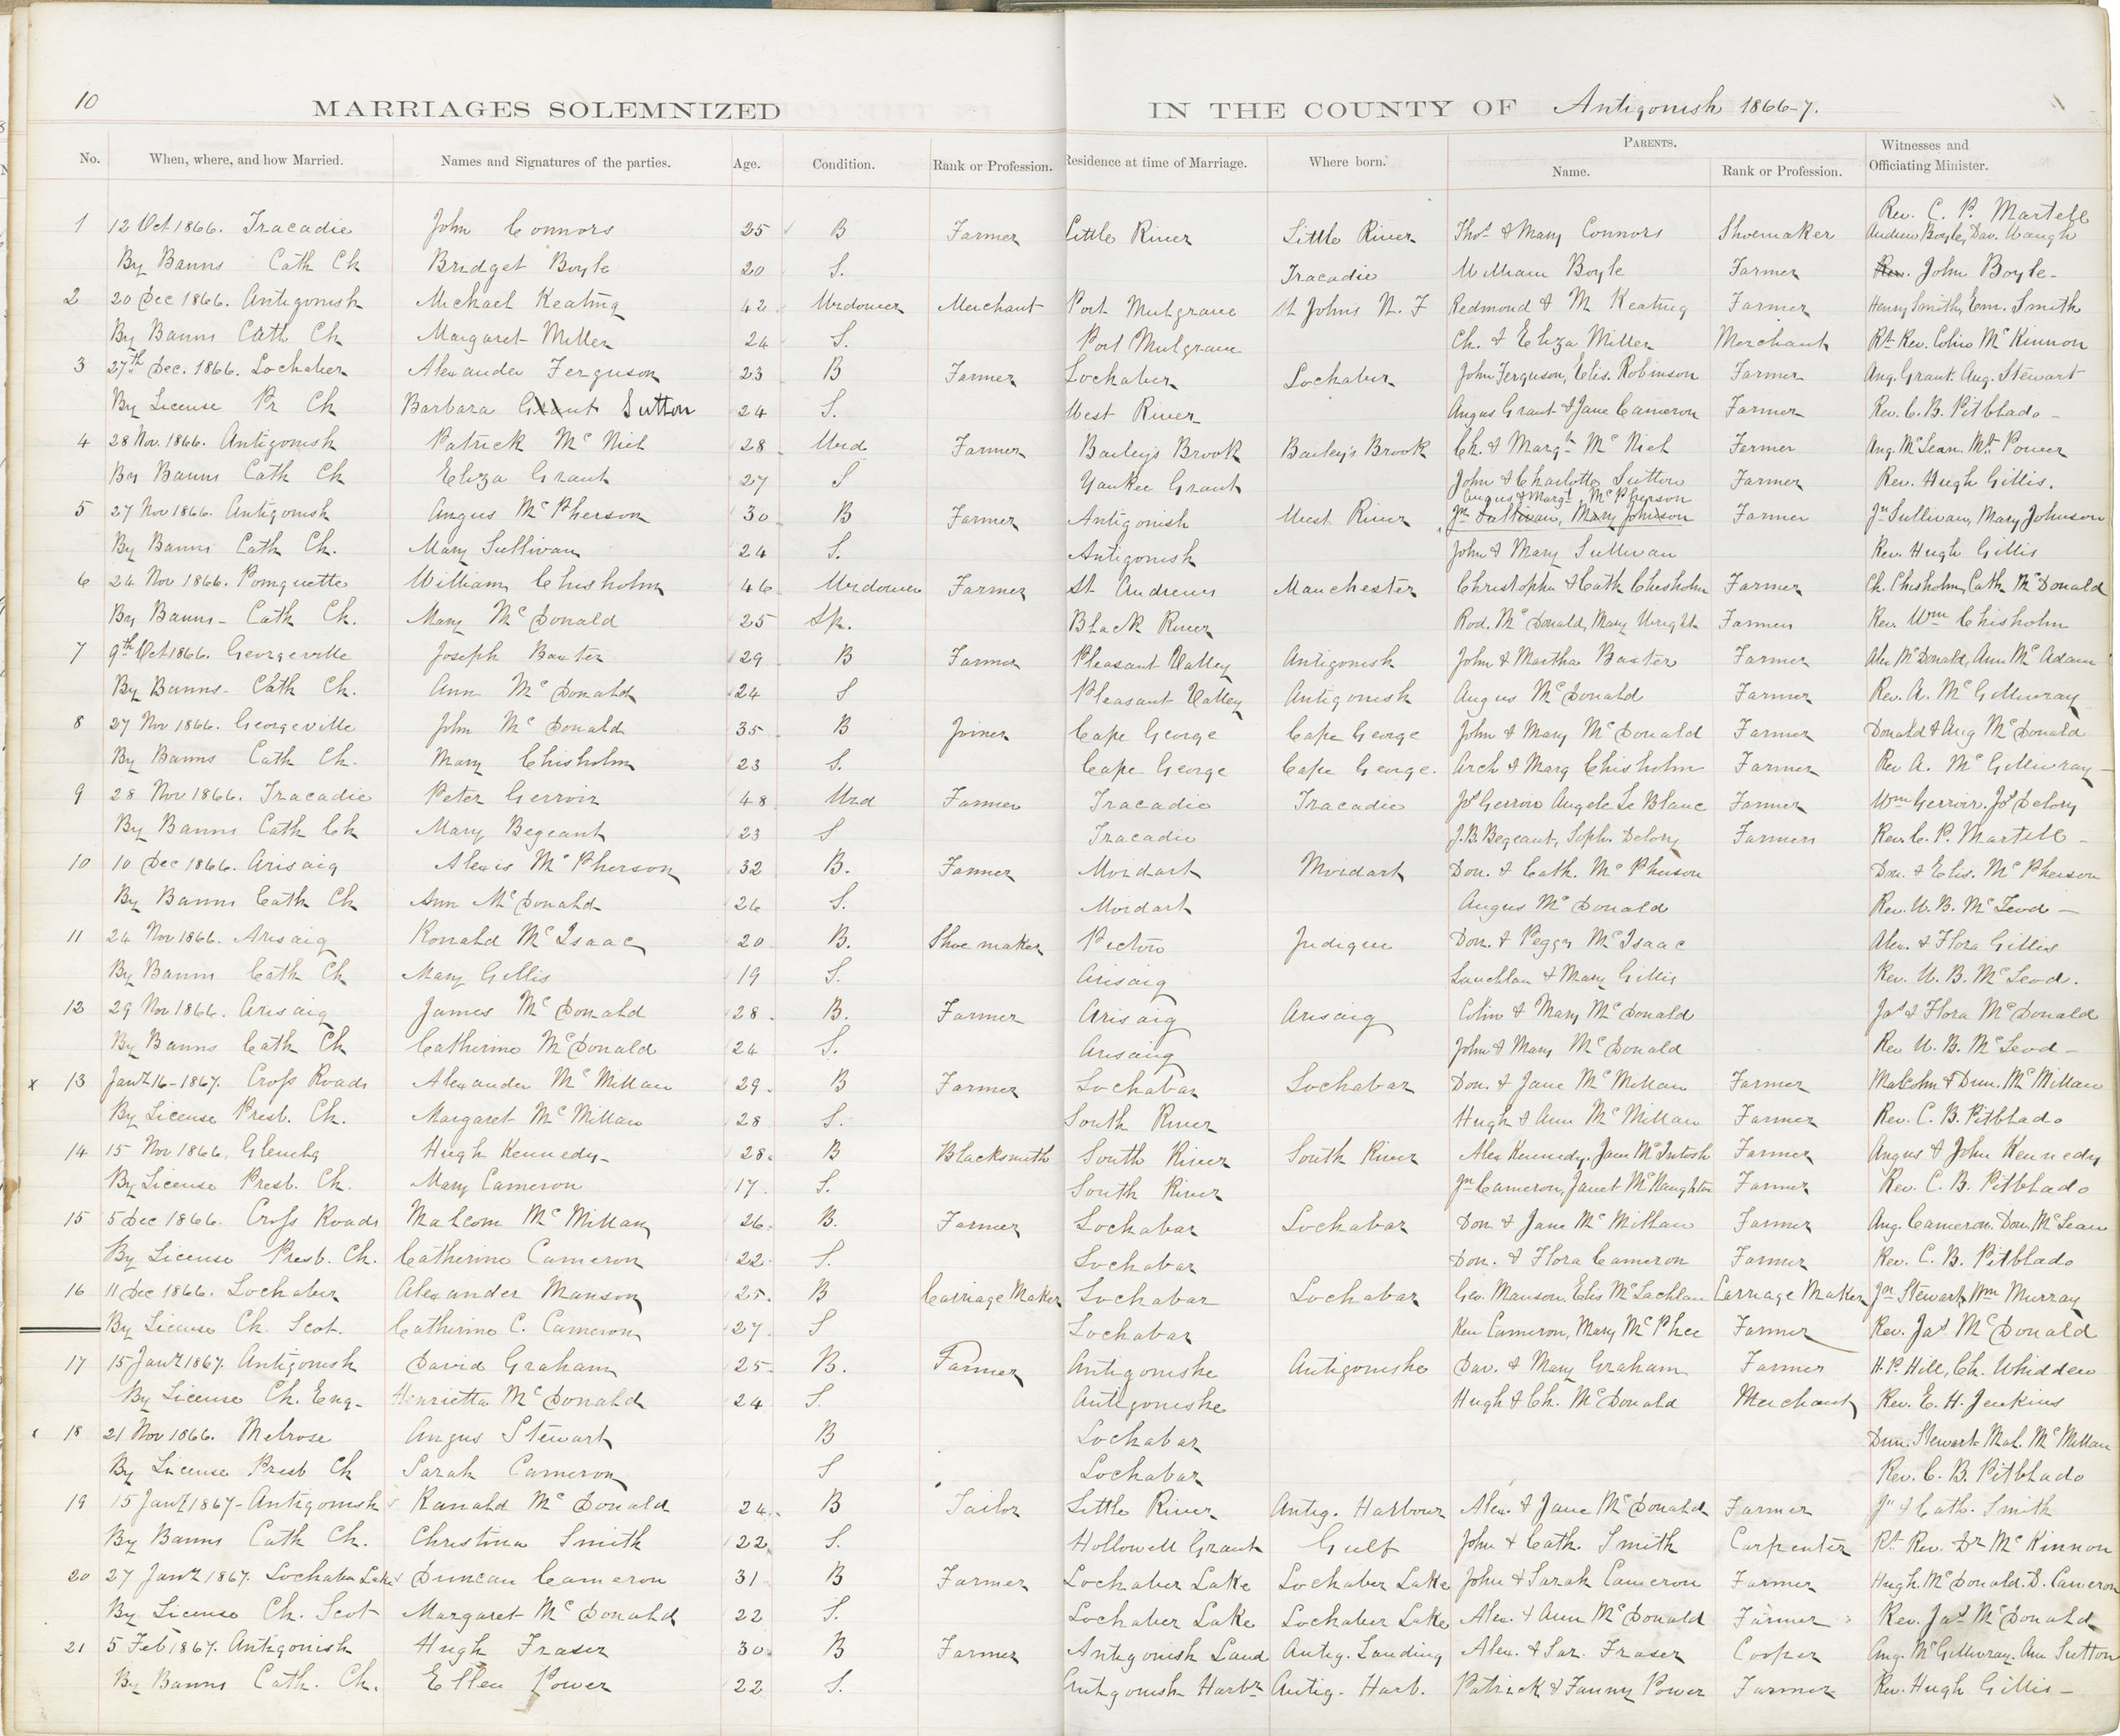 10
MARRIAGES SOLEMNIZED IN THE COUNTY OF Antigonish 1866-7.
No. When, where, and how Married. Names and Signatures of the parties. Age. Condition. Rank or Profession. Residence at time of Marriage. Where born. PARENTS. Name. Rank or Profession. Witnesses and Officiating Minister.
Rev. C. P. Martell
1 12 Oct 1866. Tracadie John Connors 25 B Farmer Little River Little River Thos & Mary Connors Shoemaker Andrew Boyle, Dav. Waugh
By Banns Cath Ch Bridget Boyle 20 S. Tracadie William Boyle Farmer Rev. John Boyle
2 20 Dec 1866. Antigonish Michael Keating 42 Widower Merchant Port Mulgrave St Johns N. F Redmond & M Keating Farmer Henry Smith, Em. Smith
By Banns Cath Ch Margaret Miller 24 S. Port Mulgrave Ch. & Eliza Miller Merchant Rt Rev. Colin McKinnon
3 27th Dec. 1866. Lochaber Alexander Ferguson 23 B Farmer Lochaber Lochaber John Ferguson, Elis. Robinson Farmer Ang. Grant. Aug. Stewart
By License Pr Ch Barbara Grant Sutton 24 S. West River Angus Grant & Jane Cameron Farmer Rev. C. B. Pitblado
4 28 Nov. 1866. Antigonish Patrick McNiel 28 Wid Farmer Bailey's Brook Bailey's Brook Ch. & Margt McNiel Farmer Ang. McLean, Mt Power
By Banns Cath Ch Eliza Grant 27 S Yankee Grant John & Charlotte Sutton Farmer Rev. Hugh Gillis.
Angus & Margt McPherson
5 27 Nov 1866. Antigonish Angus McPherson 30 B Farmer Antigonish West River Jn Sullivan, Mary Johnson Farmer Jn Sullivan, Mary Johnson
By Banns Cath Ch. Mary Sullivan 24 S. Antigonish John & Mary Sullivan Rev. Hugh Gillis
6 24 Nov 1866. Pomquette William Chisholm 46 Widower Farmer St Andrews Manchester Christopher & Cath Chisholm Farmer Ch. Chisholm, Cath McDonald
By Banns Cath Ch. Mary McDonald 25 Sp. Black River Rod. McDonald, Mary Wright Farmer Rev. Wm Chisholm
7 9th Oct 1866. Georgeville Joseph Baxter 29 B Farmer Pleasant Valley Antigonish John & Martha Baxter Farmer Alex McDonald, Ann McAdam
By Banns Cath Ch. Ann McDonald 24 S Pleasant Valley Antigonish Angus McDonald Farmer Rev. A. McGillivray
8 27 Nov 1866. Georgeville John McDonald 35 B Joiner Cape George Cape George John & Mary McDonald Farmer Donald & Ang McDonald
By Banns Cath Ch. Mary Chisholm 23 S. Cape George Cape George. Arch & Marg Chisholm Farmer Rev A. McGillivray
9 28 Nov 1866. Tracadie Peter Gerroir 48 Wid Farmer Tracadie Tracadie Js Gerroir Angele Le Blanc Farmer Wm Gerroir. Js Delory
By Banns Cath Ch Mary Begeant 23 S Tracadie J. B. Begeant, Soph. Delory Farmer Rev. C. P. Martell
10 10 Dec 1866. Arisaig Alexis McPherson 32 B. Farmer Moidart Moidart Don. & Cath. McPherson Don. & Elis. McPherson
By Banns Cath Ch Ann McDonald 26 S. Moidart Angus McDonald Rev. W. B. McLeod
11 24 Nov 1866. Arisaig Ronald McIsaac 20 B. Shoemaker Pictou Judique Don. & Peggy McIsaac Alex. & Flora Gillis
By Banns Cath Ch Mary Gillis 19 S. Arisaig Lauchlan & Mary Gillis Rev. W. B. McLeod.
12 29 Nov 1866. Arisaig James McDonald 28 B. Farmer Arisaig Arisaig Colin & Mary McDonald Jas & Flora McDonald
By Banns Cath Ch Catherine McDonald 24 S. Arisaig John & Mary McDonald Rev W. B. McLeod
x 13 Jany 16-1867. Cross Roads Alexander McMillan 29 B Farmer Lochabar Lochabar Don. & Jane McMillan Farmer Malcolm & Dun. McMillan
By License Presb. Ch. Margaret McMillan 28 S. South River Hugh & Ann McMillan Farmer Rev. C. B. Pitblado
14 15 Nov 1866. Glenelg Hugh Kennedy 28 B Blacksmith South River South River Alex Kennedy. Jane McIntosh Farmer Angus & John Kennedy
By License Presb. Ch. Mary Cameron 17 S. South River Jn Cameron, Janet McNaughton Farmer Rev. C. B. Pitblado
15 5 Dec 1866. Cross Roads Malcom McMillan 26 B. Farmer Lochabar Lochabar Don. & Jane McMillan Farmer Ang. Cameron. Don. McLean
By License Presb. Ch. Catherine Cameron 22 S. Lochabar Don. & Flora Cameron Farmer Rev. C. B. Pitblado
16 11 Dec 1866. Lochaber Alexander Manson 25 B Carriage Maker Lochabar Lochabar Geo. Manson. Elis McLachlan Carriage Maker Jn Stewart, Wm Murray
By License Ch. Scot. Catherine C. Cameron 27 S Lochabar Ken Cameron, Mary McPhee Farmer Rev. Jas McDonald
17 15 Jany 1867. Antigonish David Graham 25 B. Farmer Antigonishe Antigonishe Dav. & Mary Graham Farmer H. P. Hill, Ch. Whidden
By License Ch. Eng. Henrietta McDonald 24 S. Antigonishe Hugh & Ch. McDonald Merchant Rev. E. H. Jenkins
18 21 Nov 1866. Melrose Angus Stewart B Lochabar Dun. Stewart Mal. McMillan
By License Presb Ch Sarah Cameron S Lochabar Rev. C. B. Pitblado
19 15 Jany 1867- Antigonish Ranald McDonald 24 B Tailor Little River Antig. Harbour Alex. & Jane McDonald Farmer Jn & Cath. Smith
By Banns Cath Ch. Christina Smith 22 S. Hollowell Grant Gulf John & Cath. Smith Carpenter Rt Rev. Dr McKinnon
20 27 Jany 1867. Lochaber Lake Duncan Cameron 31 B Farmer Lochaber Lake Lochaber Lake John & Sarah Cameron Farmer Hugh McDonald. D. Cameron
By License Ch. Scot Margaret McDonald 22 S. Lochaber Lake Lochaber Lake Alex. & Ann McDonald Farmer Rev. Jas McDonald
21 5 Feb 1867. Antigonish Hugh Fraser 30 B Farmer Antigonish Land Antig. Landing Alex. & Sar. Fraser Cooper Ang. McGillivray. Ann Sutton
By Banns Cath. Ch. Ellen Power 22 S. Antigonish Harbr Antig. Harb. Patrick & Fanny Power Farmer Rev. Hugh Gillis